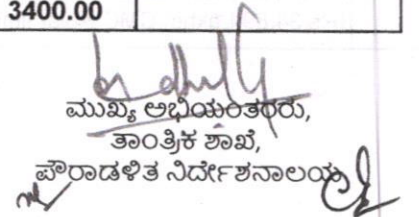 3400.00
ಮುಖ್ಯ ಅಭಿಯಂತರರು,
ತಾಂತ್ರಿಕ ಶಾಖೆ,
ಪೌರಾಡಳಿತ ನಿರ್ದೇಶನಾಲಯ